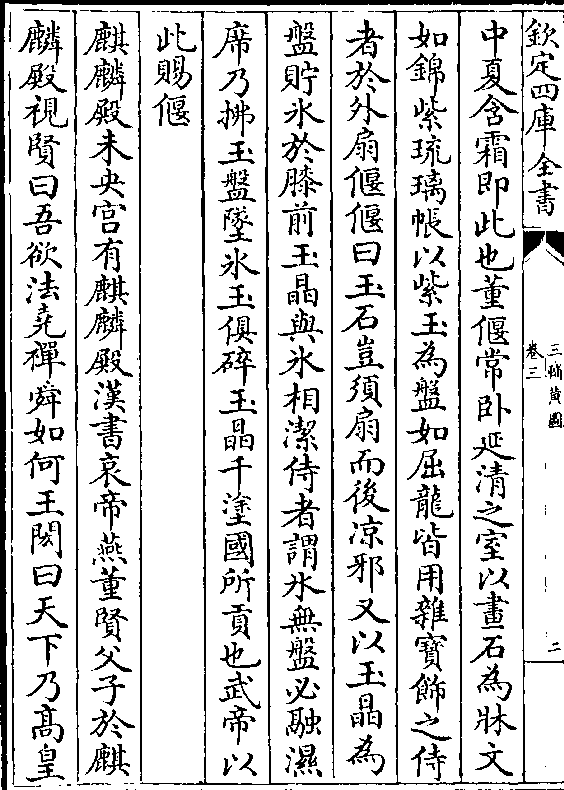 欽定四庫全書
三輔黃圖
卷三
二
中夏含霜即此也董偃常卧延清之室以畫石為牀文
如錦紫琉璃帳以紫玉為盤如屈龍皆用雜寳飾之侍
者於外扇偃偃曰玉石豈須扇而後凉邪又以玉晶為
盤貯氷於膝前玉晶與氷相潔侍者謂氷無盤必融濕
席乃拂玉盤墜氷玉俱碎玉晶千塗國所貢也武帝以
此賜偃
麒麟殿未央宫有麒麟殿漢書哀帝燕董賢父子於麒
麟殿視賢曰吾欲法堯禪舜如何王閎曰天下乃髙皇